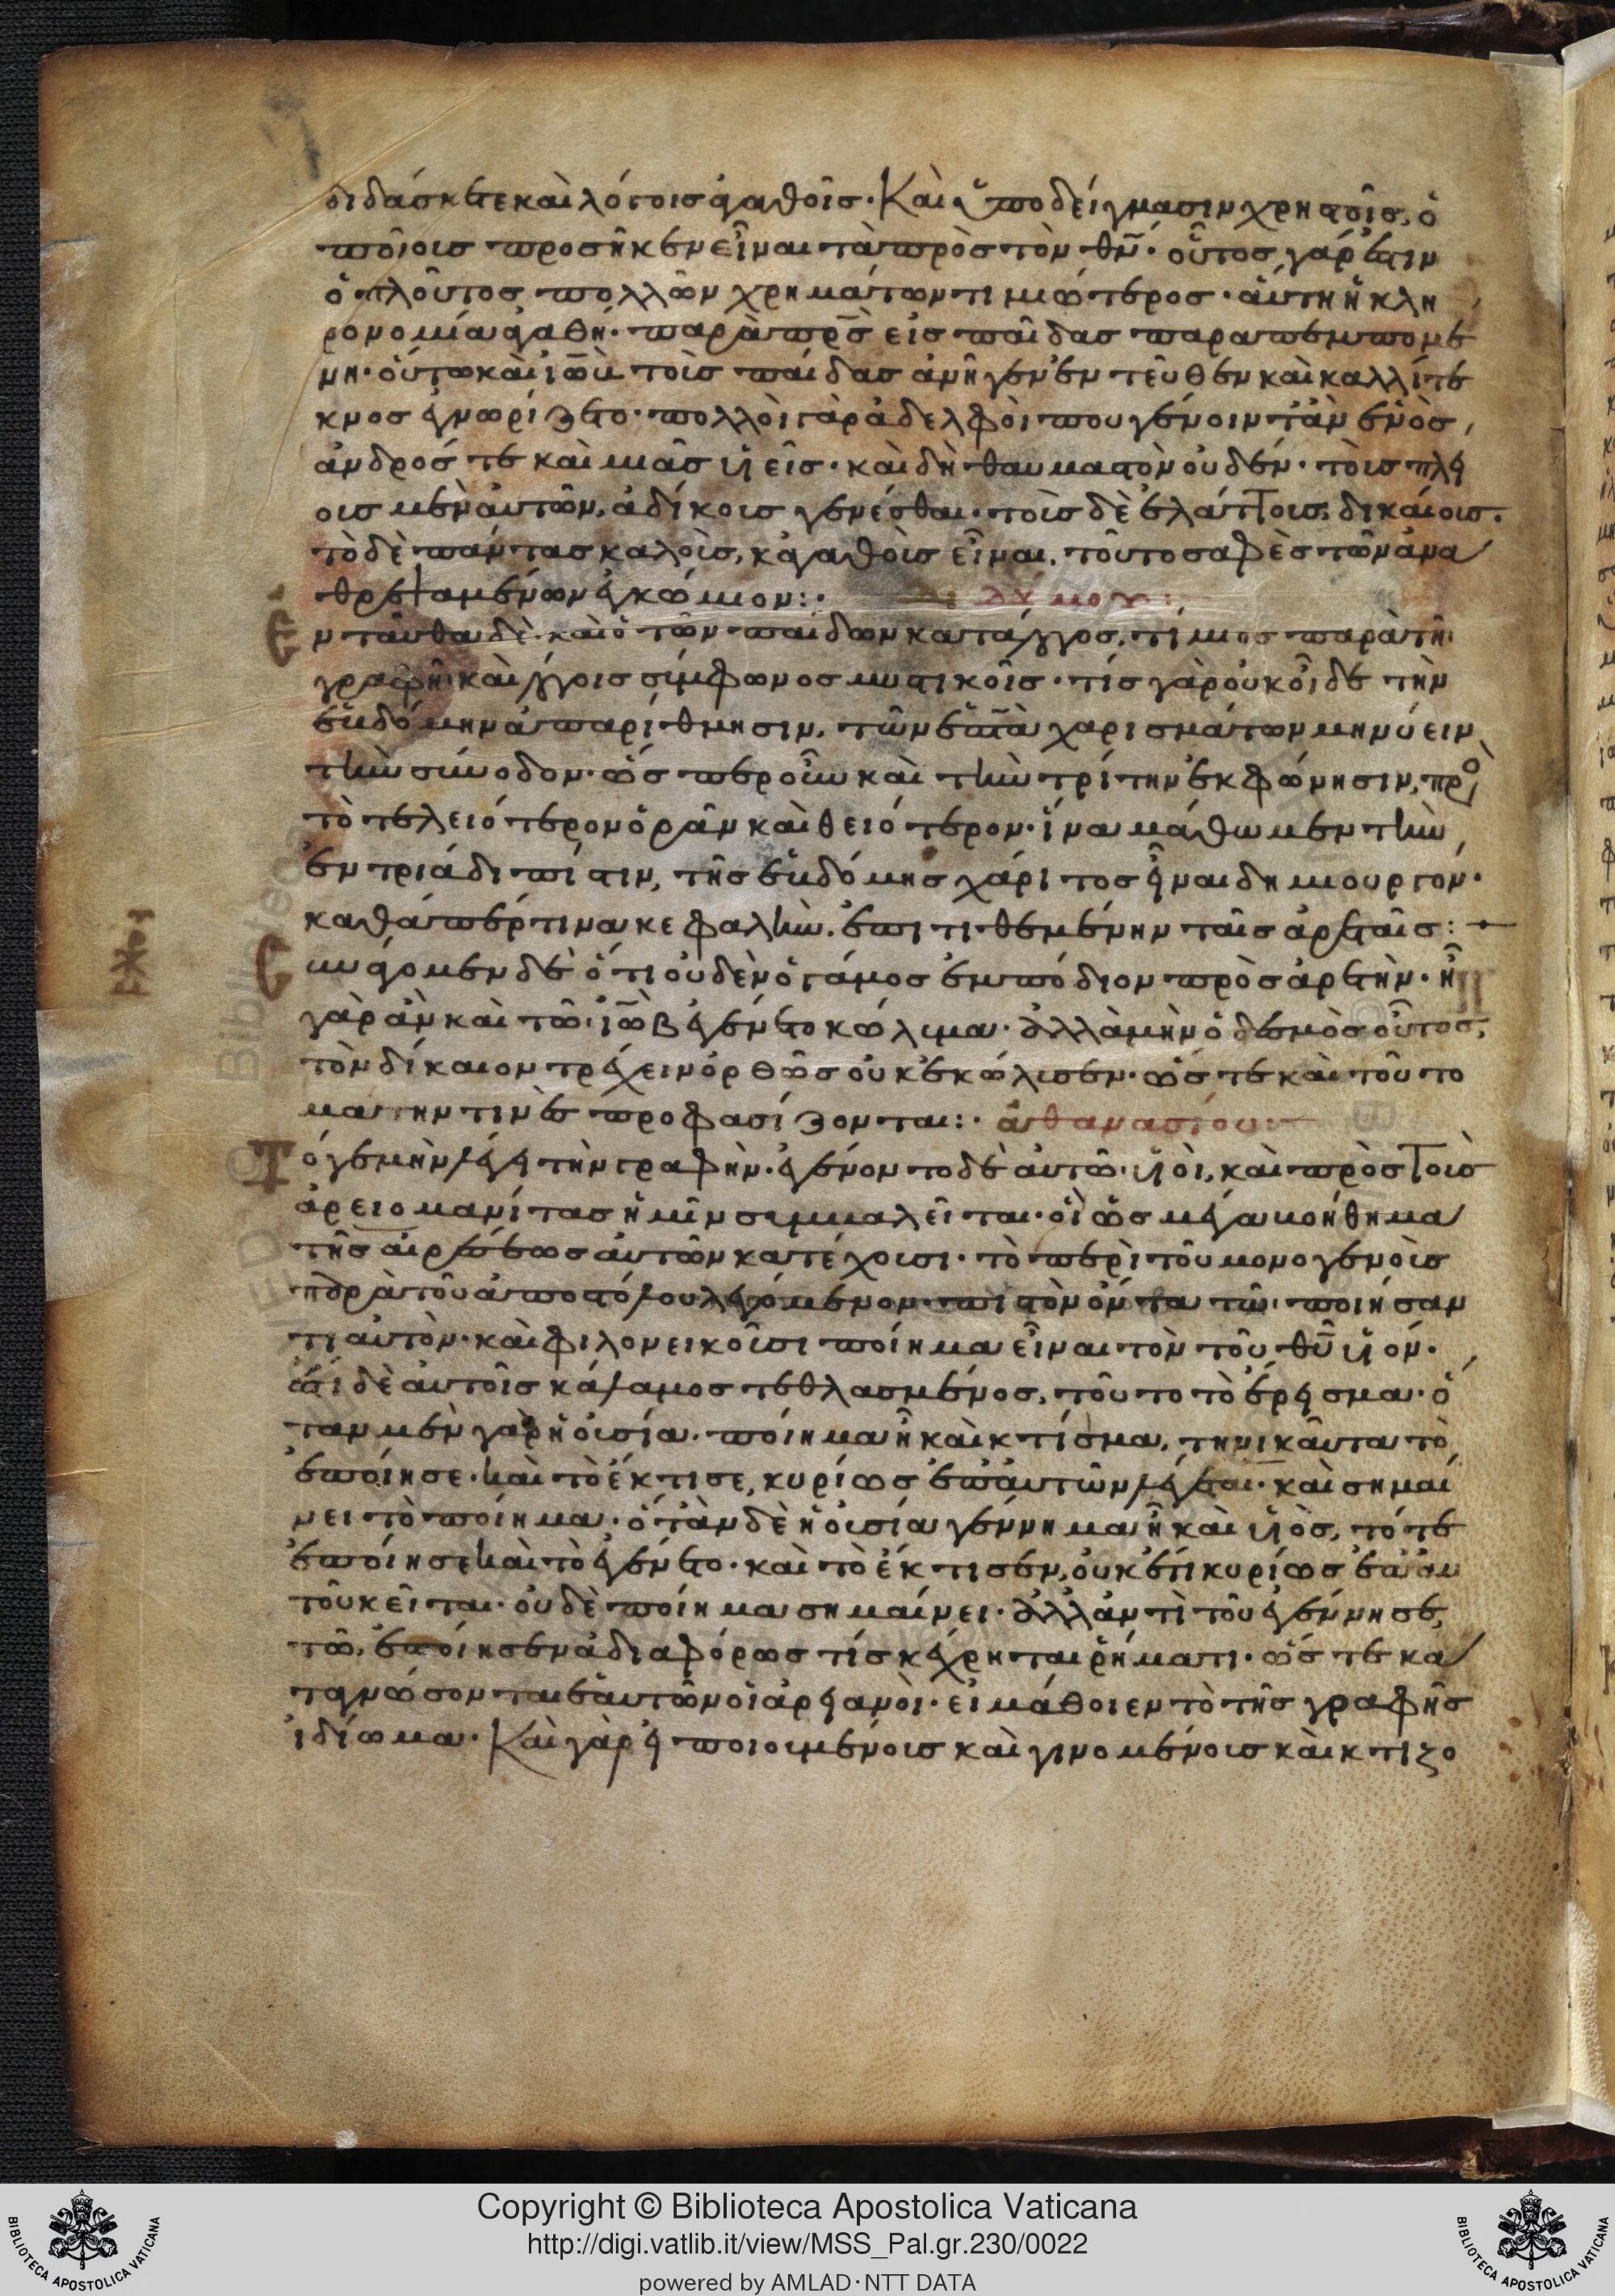 διδάσκετε καὶ λόγοις ἀγαθοῖς· Καὶ ὑποδείγμασιν χρηστοῖς, ὁ
ποίοις προσῆκεν εἶναι τὰ πρὸς τὸν θν̄· οὗτος γάρ ἐστιν
ὁ πλοῦτος πολλῶν χρημάτων τιμιώτερος· αὕτη ἡ κλη
ρονομία ἀγαθή· παρὰ πρ̄ς εἰς παῖδας παραπεμπομέ
νη· οὕτω καὶ ἰὼβ τοὺς παίδας ἀνῆγεν ἐντεῦθεν καὶ καλλίτε
κνος ἐγνωρίζετο· πολλοὶ γὰρ ἀδελφοί που γένοιντ' ἂν ἑνὸς,
ἀνδρός τε καὶ μιᾶς υἱεῖς· καὶ δὴ θαυμαστὸν οὐδέν· τοὺς πλεί
ους μὲν αὐτῶν, ἀδίκους γενέσθαι· τοὺς δὲ ἐλάττους, δικαίους.
τὸ δὲ πάντας καλοὺς, κἀγαθοὺς εἶναι, τοῦτο σαφὲς τῶν ἀνα
θρεψαμένων ἐγκώμιον:· διδύμου:
Ἐνταῦθα δὲ καὶ ὁ τῶν παίδων κατάλογος, τίμιος παρὰ τῆ
γραφῆ καὶ λόγοις σύμφωνος μυστικοῖς· τίς γὰρ οὐκ οἶδε τὴν
ἑβδόμην ἀπαρίθμησιν, τῶν ἑπτὰ χαρισμάτων μηνύειν
τὴν σύνοδον· ὥσπερ οὖν καὶ τὴν τρίτην ἐκφώνησιν, πρὸς
τὸ τελειότερον ὁρᾶν καὶ θειότερον· ἵνα μάθωμεν τὴν
ἐν τριάδι πίστιν, τῆς ἑβδόμης χάριτος εἶναι δημιουργόν·
καθάπερ τινα κεφαλὴν ἐπιτιθεμένην ταῖς ἀρεταῖς:
Ἐννοοῦμεν δὲ ὅτι οὐδὲν ὁ γάμος ἐμπόδιον πρὸς ἀρετὴν· ἦ
γὰρ ἂν καὶ τῶ ἰὼβ ἐγένετο κώλυμα· ἀλλὰ μὴν ὁ δεσμὸς οὗτος,
τὸν δίκαιον τρέχειν ὀρθῶς οὐκ ἐκώλυσεν· ὥστε καὶ τοῦτο
μάτην τινὲς προφασίζονται:· ἀθανασίου:
Τό γε μὴν λέγει τὴν γραφὴν· ἐγένοντο δὲ αὐτῶ υἱοὶ, καὶ πρὸς τοὺς
ἀρειομανίτας ἡμῖν συμβαλεῖται· οἳ ὡς μέγα βοήθημα
τῆς αἱρέσεως αὐτῶν κατέχουσι· τὸ περὶ τοῦ μονογενοὺς
παρὰ τοῦ ἀποστόλου λεγόμενον· πιστὸν ὄντα τῶ ποιήσαν
τι αὐτὸν· καὶ φιλονεικοῦσι ποίημα εἶναι τὸν τοῦ θῡ υἱόν·
ἔστι δὲ αὐτοῖς κάλαμος τεθλασμένος, τοῦτο τὸ ἔρεισμα· ὅ
ταν μὲν γὰρ ἡ οὐσία· ποίημα ἦ καὶ κτίσμα, τηνικαῦτα τὸ
ἐποίησε· καὶ τὸ ἔκτισε, κυρίως ἐπ' αὐτῶν λέγεται· καὶ σημαί
νει τὸ ποίημα· ὅταν δὲ ἡ οὐσία γέννημα ἦ καὶ υἱὸς, τότε
ἐποίησε καὶ τὸ ἐγένετο· καὶ τὸ ἔκτισεν, οὐκ ἔτι κυρίως ἐπ' αὐ
τοῦ κεῖται· οὐδὲ ποίημα σημαίνει· ἀλλ' ἀντὶ τοῦ ἐγέννησε,
τῶ, ἐποίησεν ἀδιαφόρως τὶς κέχρηται ῥήματι· ὥστε κα
ταγνώσονται ἑαυτῶν οἱ ἀρειανοὶ· εἰ μάθοιεν τὸ τῆς γραφῆς
ἰδίωμα· Καὶ γὰρ ἐπὶ ποιουμένοις καὶ γινομένοις καὶ κτιζο
Copyright © Biblioteca Apostolica Vaticana
http://digi.vatlib.it/view/MSS_Pal.gr.230/0022
powered by AMLAD·NTT DATA
BIBLIOTECA APOSTOLICA VATICANA
BIBLIOTECA APOSTOLICA VATICANA